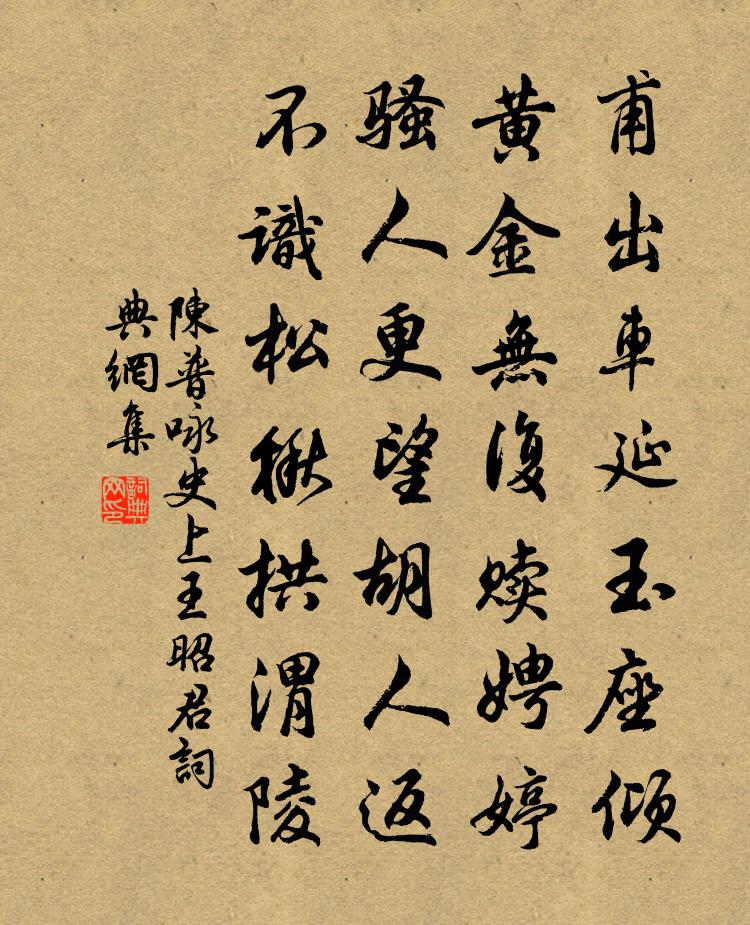 甫出車延玉座傾
黄金無復赎娉婷
騷人更望胡人返
不識松楸拱渭陵
陳普咏史上王昭君詞
典網集
詞典
网印